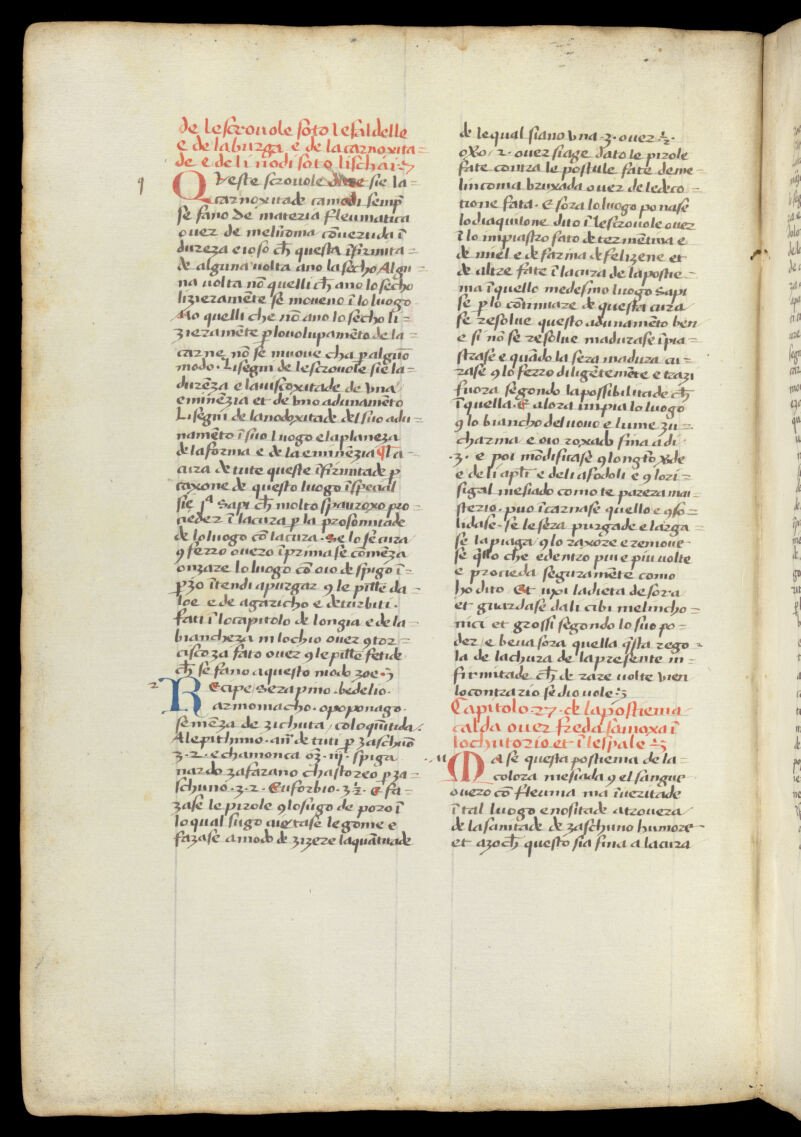 de le scrouole soto le saldelle
e de la burga e de la carnoxita=
de e de li nodi soto li schai
q
Queste scrouole sie la=
carnoxitade camodi semp̄
se fano de materia fleumatica
ouer de melīconia cōuertida ī
dureza e ioso ch̄ questa īfirmita=
de alguna uolta ano la secho Algu=
na uolta nō quelli ch̄ ano lo secho
lizieramēte se moueno ī lo luogo
Ma quelli che nō ano lo secho li=
zieramēte p lo uolupamēto de la=
carne nō se muoue cha p alguō
modo. Li segni de le scrouole sie la=
durēza e la uiscoxitade de una
eminēzia et de uno adunamēto
Li segni de la nodoxitade del suo adu=
namēto ī suo luogo e la planeza
de la forma e de la eminēzia ¶ La
cura de tute queste īfirmitade p
raxone de questo luogo ī special
sie jᵃ Sapi ch̄ molto spauroxo pro=
cieder ī la cura p la profonnitade
de lo luogo cō la cura. Se lo se cura
ꝯ ferro ouero ī prima se comēza
onzare lo luogo cō oio de spigo ī=
perzo ītendi a purgar ꝯ le pille da=
loe e de agaricho e de turbiti.
fati ī lo capitolo de longia e de la=
biancheza in lochio ouer ꝯ tor=
cisco za fato ouer ꝯ le pille fetide
ch̄ se fano a questo modo zoe.
2
Recipe Serapino. bedelio.
armoniacho. opoponago.
semēza de zichuta, coloquītida.
Alepithimo. an̄ de tuti p zaschuō
ʒ. 2. e schamonea oʒ. iij. spiga
nardo zafarano chastoreo p za=
schuno. ʒ. 2. Euforbio. ʒ ½. E fa=
zase le pirole ꝯ lo sugo de poro ī
lo qual sugo curtase le gome e
fazase a modo de zizere la quātitade
de le qual siano una. ʒ. ouer ½.
oxo. 2. ouer siage dato le pirole
fate contra le postule fate de me=
linconia bruxada ouer de le deco=
tione fata. E sora lo luogo ponase
lo diaquilone dito ī le scrouole ouer
ī lo impiastro fato de termētina e
de miel e de farina de felizene et
de altre fate ī la cura de la postie=
ma ī quello medesimo luogo Sapi
se p lo cōtinuare de questa cura
se resolue questo adunamēto ben
e si nō se resolue madurase īpia=
strase e quādo la sera madura cu=
rase ꝯ lo ferro diligētemēte e trazi
fuora segondo la possibilitade ch̄
ī quella. E alora impia lo luogo
ꝯ lo biancho del uouo e lume zu=
charina e oio roxado fina a di.
.3. e poi mōdificase ꝯ longto v̄de
e de li aptī e de li afodoli e ꝯ lo ri=
sigal mesiado como te parera mai=
sterio. puo īcarnase quello e ꝯso=
lidase. se le sera purgade e larga=
se la piaga ꝯ lo raxore e remoue=
se q̄llo che e dentro piu e piu uolte
e procieda seguramēte como
ho dito. Et uxi la dieta de sora
et guardase da li cibi melincho=
nici et grossi segondo lo suo po=
der e beua sora quella q̄sta rego=
la de la chura de la presente in=
firmitade ch̄ de rare uolte uien
lo contrario se dio uole
Capitolo 27. de la postiema
calda ouer freda samoxa ī
lo chutorio et ī le spale
M
Ma se questa postiema de la=
colora mesiada ꝯ el sangue
ouero cō fleuma ma ī ueritade
ī tal luogo e nositade atrouera
de la sanitade de zaschuno humore
et azoch̄ questo sia fina a la cura